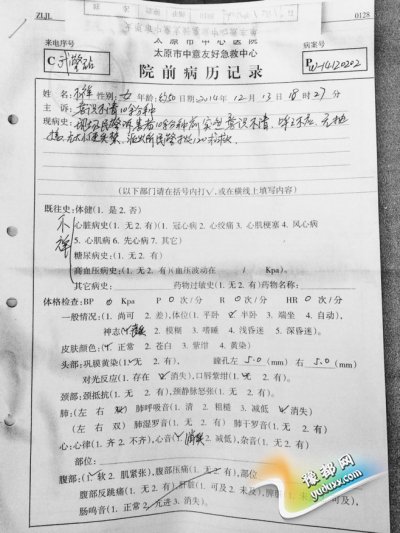 ZLJL 0128
太原市中心医院
来电序号 太原市中意友好急救中心 病案号
院前病历记录
姓名: 不祥 性别: 女 年龄: 约50 日2014年12月13日18时27分
主诉: 意识不清10余分钟
现病史:
(以下部门请在括号内打√,或在横线上填写内容)
既往史:体健(1.是2.否)
不祥
心脏病史(1.无2.有)(1.冠心病2.心绞痛3.心肌梗塞4.风心病
5.心肌病6.先心病7.其它)
糖尿病史:(1.无2.有)
高血压病史:(1.无2.有)(血压波动在 / Kpa)。
其它病史: 药物过敏史(1.无2.有)药物名称:
体格检查:BP 0 Kpa P 0 次/分 R 0 次/分 HR 0 次/分
一般情况:(1.尚可 2.差),体位(1.平卧 2.半卧 3.端坐 4.自动),
神志 2.模糊 3.嗜睡 4.浅昏迷 5.深昏迷)。
皮肤颜色:(1.正常 2.苍白 3.紫绀 4.黄染)
头部:巩膜黄染(1.无 2.有), 瞳孔左 5.0 (mm) 右 5.0 (mm)
对光反应(1.存在 2.消失),口唇紫绀(1.无 2.有)。
颈部:颈抵抗(1.无2.有),颈静脉怒张(1.无2.有)。
肺:(左 右 双)肺呼吸音(1.清 2.粗糙 3.减低 4.消失)
(左 右 双)肺湿罗音(1.无2.有) 肺干罗音(1.无2.有)
心:心律(1.齐 2.不齐),心音( 消失 2.减低),杂音(1.无2.有)
部位:
腹部:(1.软2.肌紧张),腹部压痛(1.无2.有),部位
腹部反跳痛(1.无2.有)肝脏(1.可及2.未及),脾脏(1.未及2.可及),
肠鸣音(1.正常2.亢进3.消失)。
豫都网
yuduxx.com